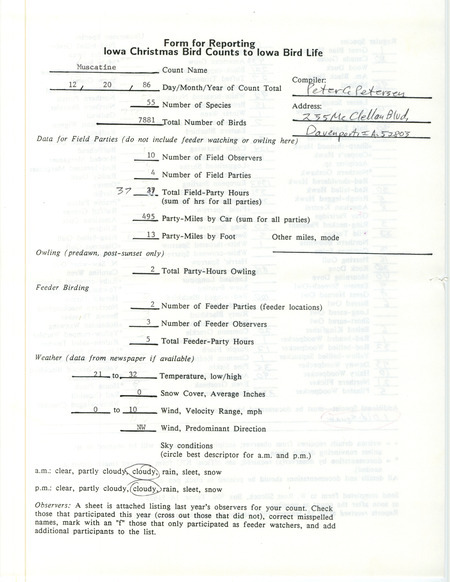 Form for Reporting
Iowa Christmas Bird Counts to Iowa Bird Life
Muscatine Count Name
12 / 20 / 86 Day/Month/Year of Count Total
Compiler:
Peter C Petersen
55 Number of Species
Address:
235 McClellan Blvd,
7881 Total Number of Birds
Davenport IA 52803
Data for Field Parties (do not include feeder watching or owling here)
10 Number of Field Observers
4 Number of Field Parties
37 37 Total Field-Party Hours
(sum of hrs for all parties)
495 Party-Miles by Car (sum for all parties)
13 Party-Miles by Foot Other miles, mode
Owling (predawn, post-sunset only)
2 Total Party-Hours Owling
Feeder Birding
2 Number of Feeder Parties (feeder locations)
3 Number of Feeder Observers
5 Total Feeder-Party Hours
Weather (data from newspaper if available)
21 to 32 Temperature, low/high
0 Snow Cover, Average Inches
0 to 10 Wind, Velocity Range, mph
NW Wind, Predominant Direction
Sky conditions
(circle best descriptor for a.m. and p.m.)
a.m.: clear, partly cloudy, cloudy, rain, sleet, snow
p.m.: clear, partly cloudy, cloudy, rain, sleet, snow
Observers: A sheet is attached listing last year's observers for your count. Check
those that participated this year (cross out those that did not), correct misspelled
names, mark with an "f" those that only participated as feeder watchers, and add
additional participants to the list.